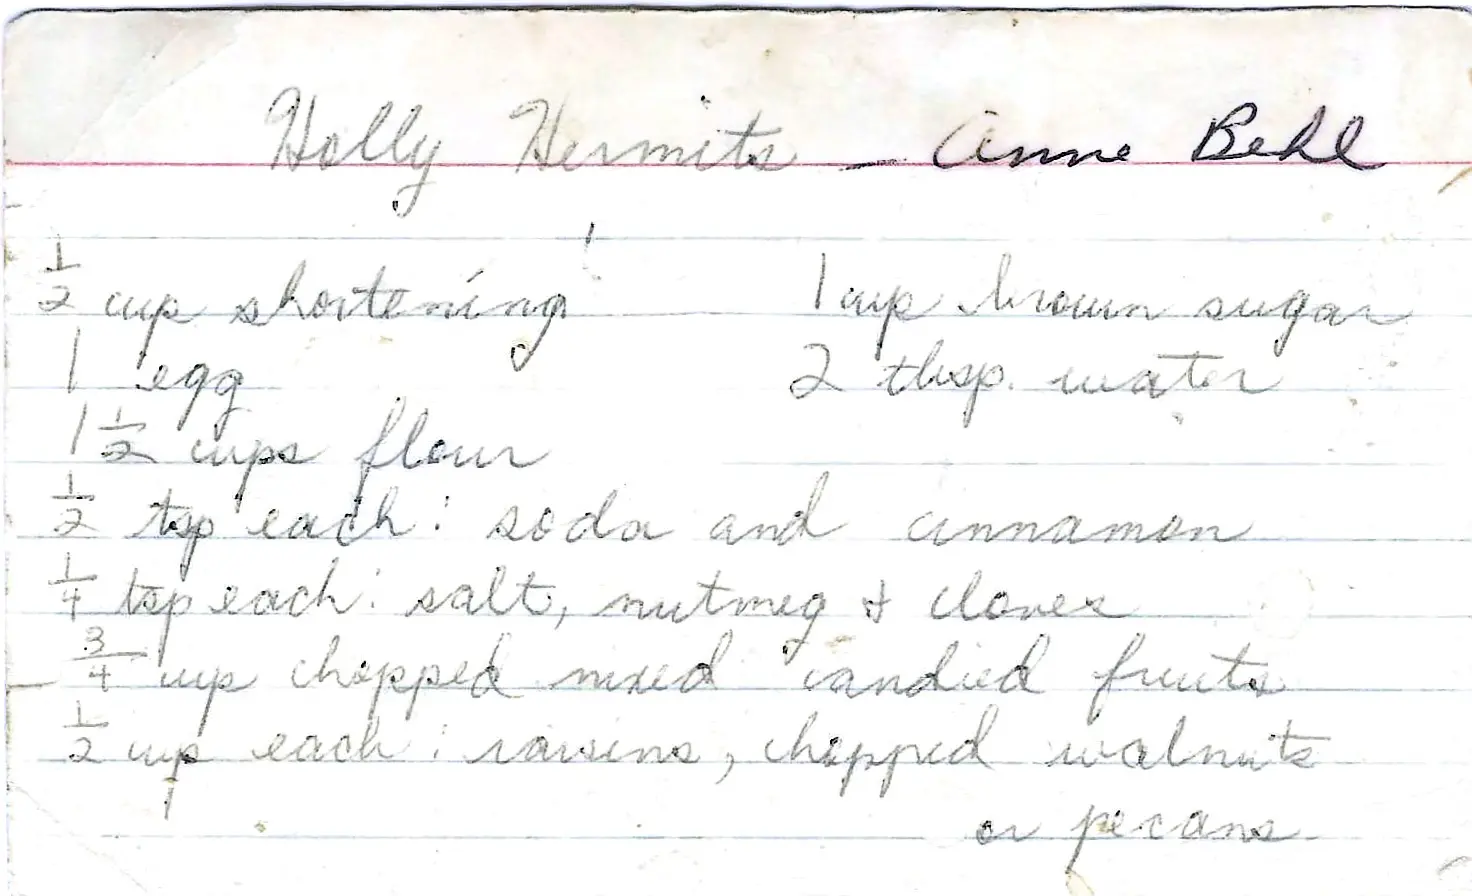 Holly Hermits - Anne Behl
½ cup shortening 1 cup brown sugar
1 egg 2 tbsp. water
1 ½ cups flour
½ tsp each: soda and cinnamon
¼ tsp each: salt, nutmeg & cloves
¾ cup chopped mixed candied fruits
½ cup each: raisins, chopped walnuts
or pecans